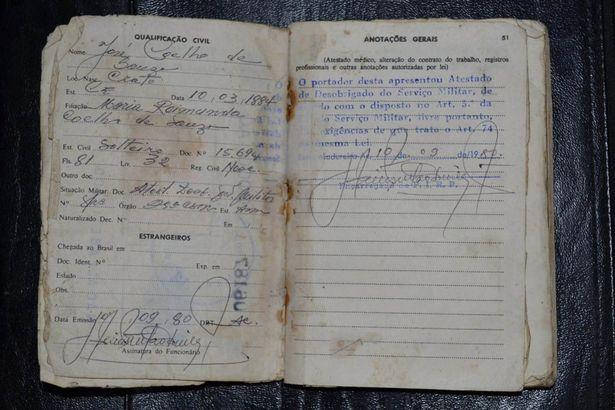 QUALIFICAÇÃO CIVIL
Nome José Coelho de
Souza
Loc. Nasc. Crato
Est. Data 10, 03, 1884
Filiação Maria Raimunda
Coelho de Souza
Est. Civil Solteiro Doc. Nº 15.694
Fls. 81 Liv. 32 Reg. Civil
Outro doc.
Situação Militar: Doc.
Nº Órgão Est.
Naturalizado Dec. Nº Em
ESTRANGEIROS
Chegada ao Brasil em
Doc. Ident. Nº Exp. em
Estado
Obs.
Data Emissão 10, 09, 80 DRT Ac.
Assinatura do Funcionário
06187
ANOTAÇÕES GERAIS 51
(Atestado médico, alteração do contrato de trabalho, registros
profissionais e outras anotações autorizadas por lei)
O portador desta apresentou Atestado
de Desobrigado do Serviço Militar, de
do com o disposto no Art. 5.º da
do Serviço Militar, livre portanto,
exigências de que trato o Art. 74
mesma Lei.
10 de 09 de 1980